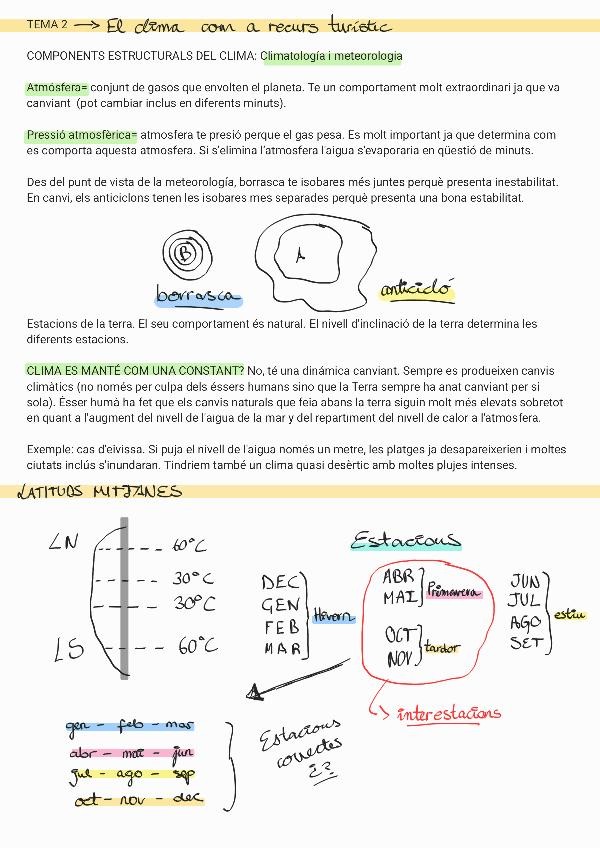 TEMA 2 → El clima com a recurs turístic
COMPONENTS ESTRUCTURALS DEL CLIMA: Climatología i meteorologia
Atmósfera= conjunt de gasos que envolten el planeta. Te un comportament molt extraordinari ja que va
canviant (pot cambiar inclus en diferents minuts).
Pressió atmosfèrica= atmosfera te presió perque el gas pesa. Es molt important ja que determina com
es comporta aquesta atmosfera. Si s'elimina l'atmosfera l'aigua s'evaporaria en qüestió de minuts.
Des del punt de vista de la meteorología, borrasca te isobares més juntes perquè presenta inestabilitat.
En canvi, els anticiclons tenen les isobares mes separades perquè presenta una bona estabilitat.
B
A
borrasca
anticicló
Estacions de la terra. El seu comportament és natural. El nivell d'inclinació de la terra determina les
diferents estacions.
CLIMA ES MANTÉ COM UNA CONSTANT? No, té una dinámica canviant. Sempre es produeixen canvis
climàtics (no només per culpa dels éssers humans sino que la Terra sempre ha anat canviant per si
sola). Ésser humà ha fet que els canvis naturals que feia abans la terra siguin molt més elevats sobretot
en quant a l'augment del nivell de l'aigua de la mar y del repartiment del nivell de calor a l'atmosfera.
Exemple: cas d'eivissa. Si puja el nivell de l'aigua només un metre, les platges ja desapareixerien i moltes
ciutats inclús s'inundaran. Tindriem també un clima quasi desèrtic amb moltes plujes intenses.
LATITUDS MITJANES
LN
60°C
30°C
30°C
LS
60°C
Estacions
DEC
GEN
FEB
MAR
Hivern
ABR
MAI
Primavera
OCT
NOV
tardor
JUN
JUL
AGO
SET
estiu
interestacions
gen - feb - mar
abr - mai - jun
jul - ago - sep
oct - nov - dec
Estacions
correctes
¿?